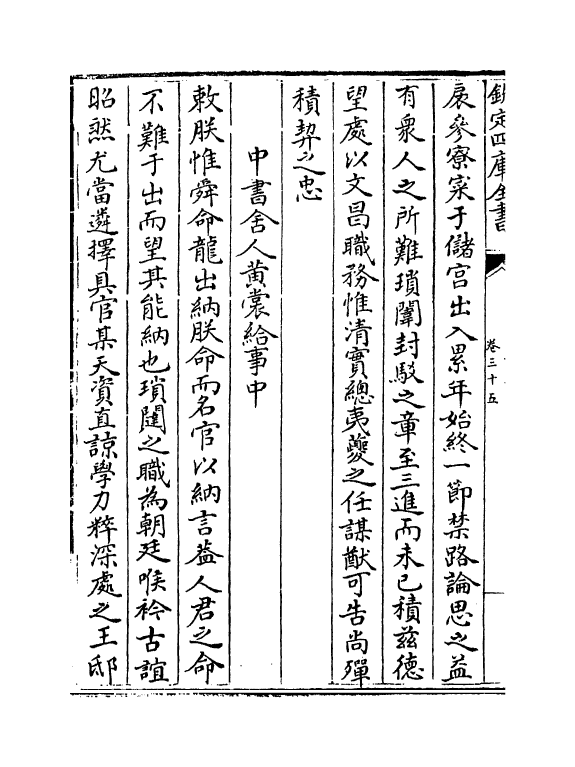 欽定四庫全書
卷三十五
扆參寮寀于儲宮出入累年始終一節禁路論思之益
有衆人之所難瑣闥封駁之章至三進而未已積茲德
望處以文昌職務惟清實總夷夔之任謀猷可告尚殫
積契之忠
中書舍人黄裳給事中
敕朕惟舜命龍出納朕命而名官以納言葢人君之命
不難于出而望其能納也瑣闥之職為朝廷喉衿古誼
昭然尤當遴擇具官某天資直諒學力粹深處之王邸